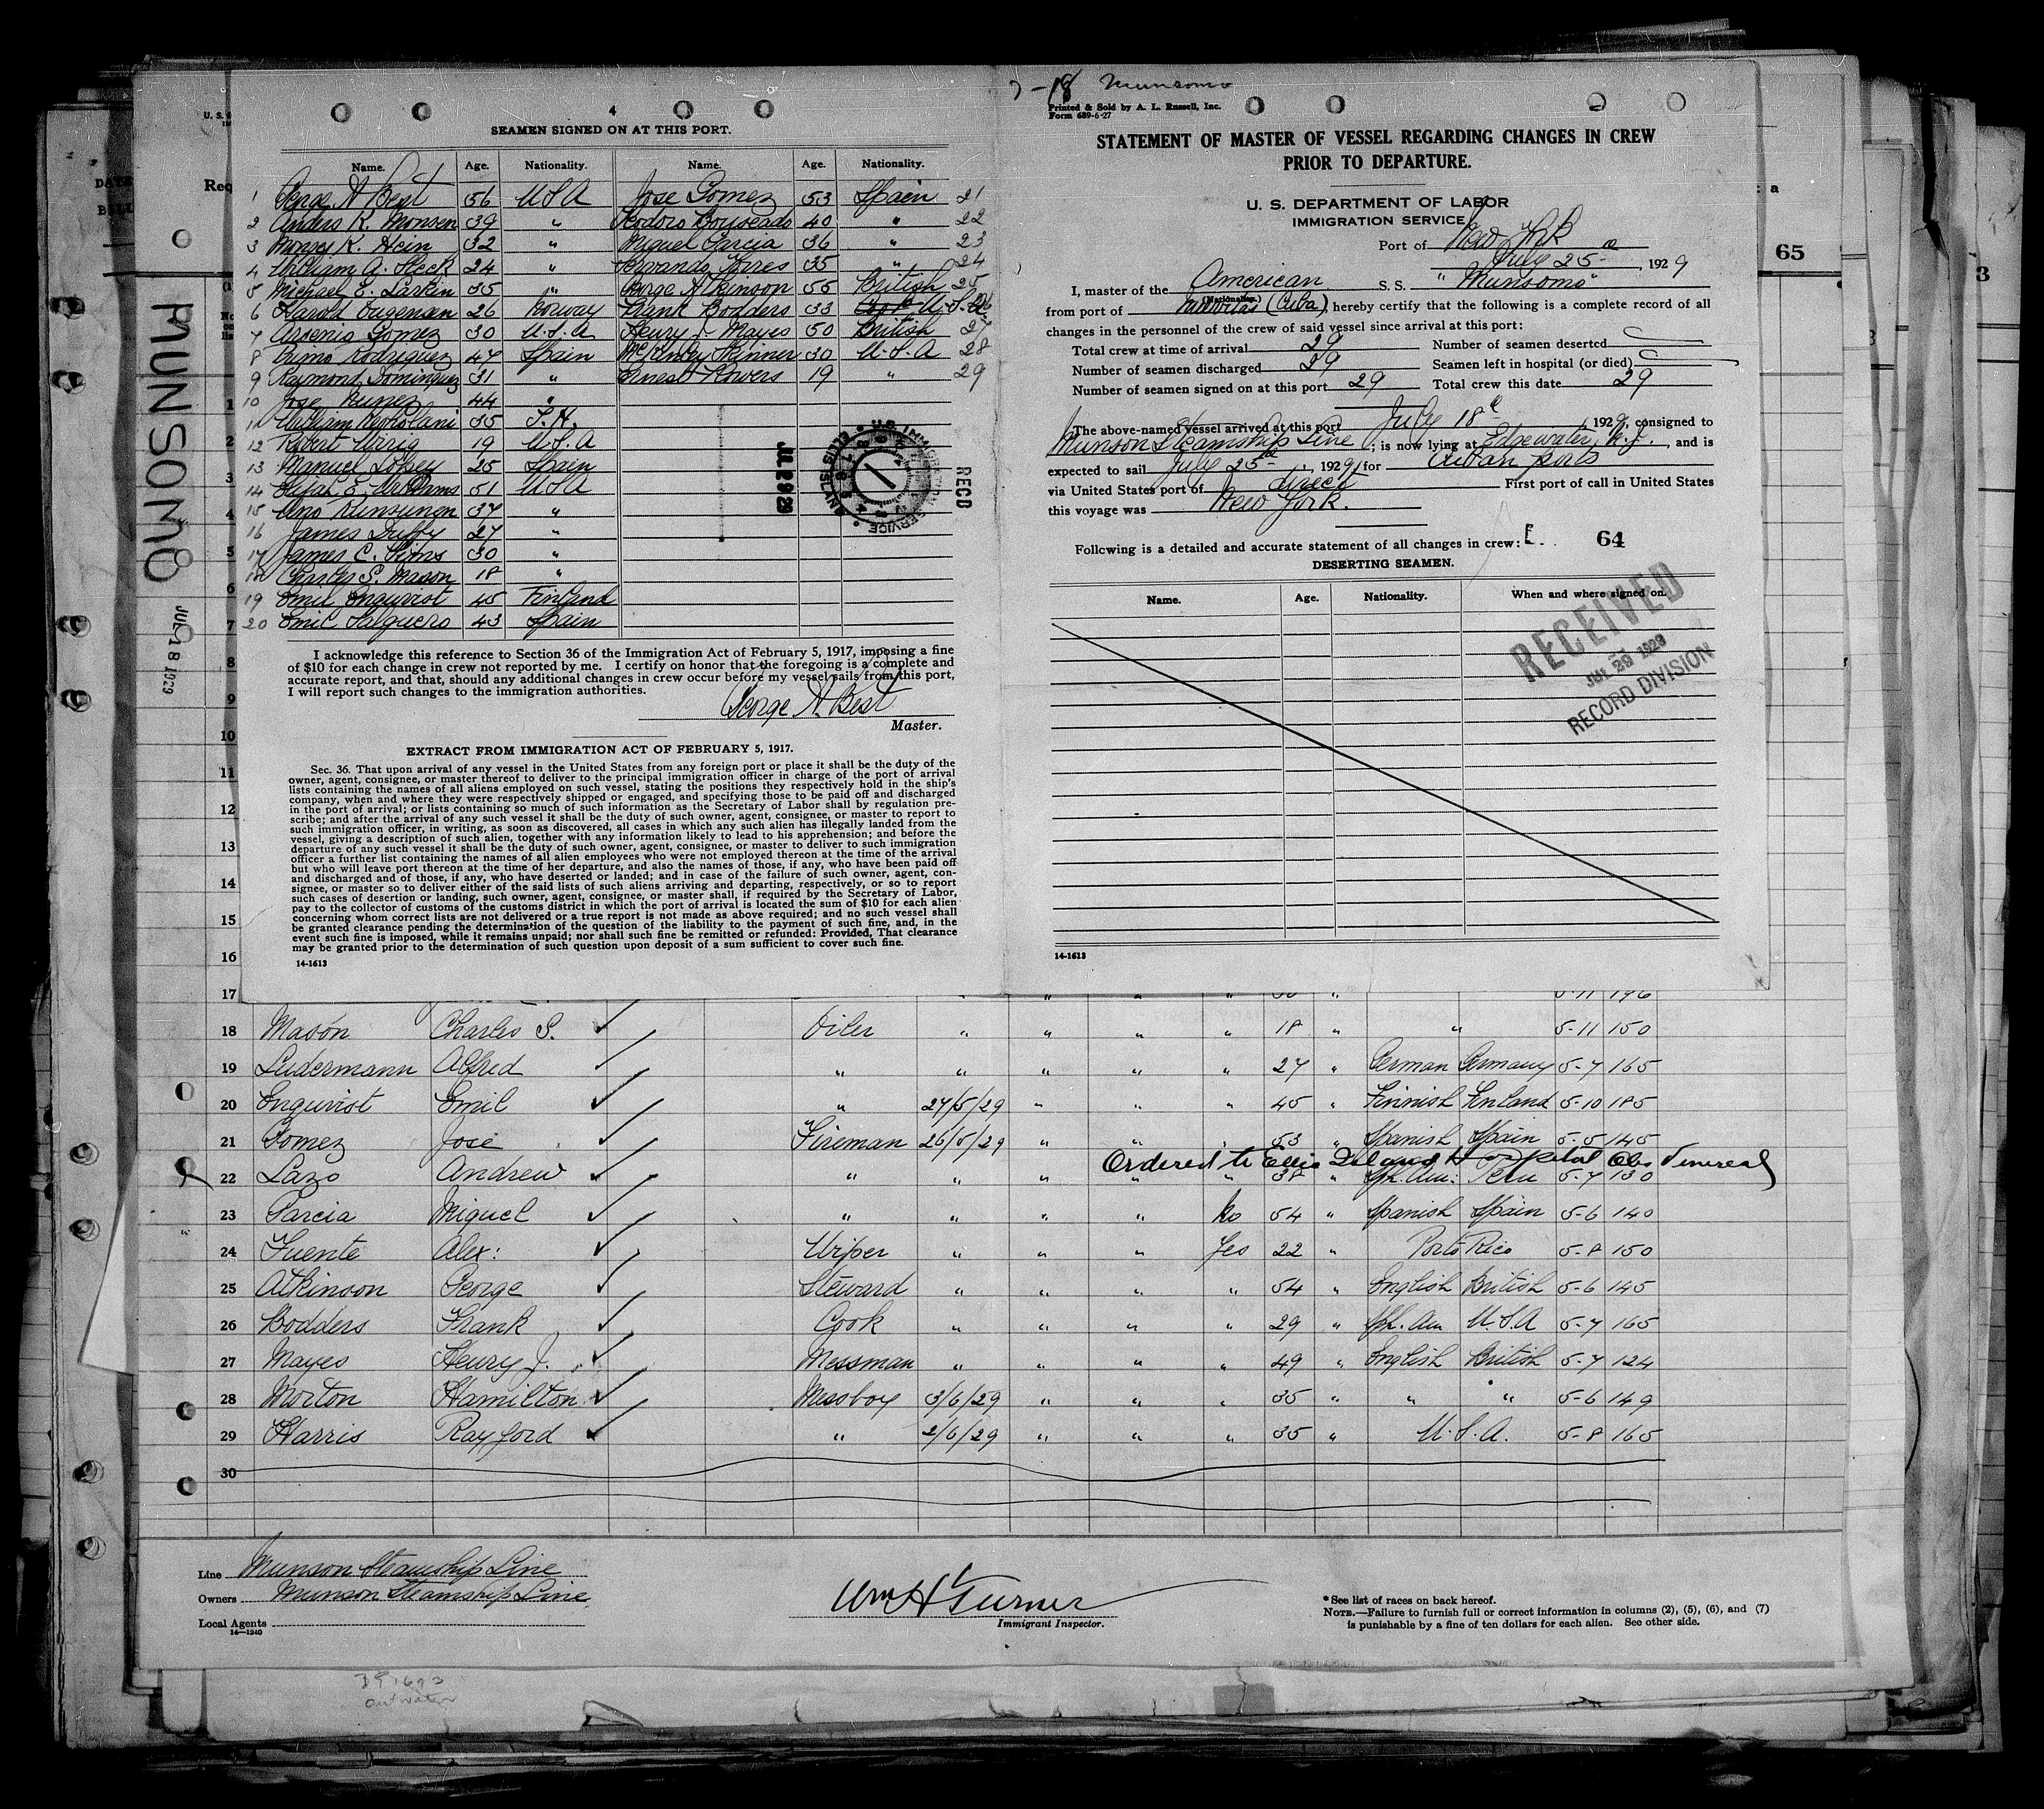 4
SEAMEN SIGNED ON AT THIS PORT.
Name. Age. Nationality. Name. Age. Nationality.
1 George A Best 56 U S A Jose Gomez 53 Spain 21
2 Anders K. Monsen 39 " 40 " 22
3 K. Hein 32 " Miguel Garcia 36 " 23
4 William A. Fleck 24 " Servando 35 " 24
5 Michael E. Larkin 35 " George Atkinson 55 British 25
6 Harold Jugensen 26 Norway Frank Bodders 33 U.S.A.
7 Arsenio Gomez 30 U.S.A Henry J. Mayes 50 British 27
8 Primo Rodriguez 47 Spain McKinley Skinner 30 U.S.A 28
9 Raymond Dominguez 31 " Ernest Flowers 19 " 29
10 Jose Nunez 44 "
11 William 35 T.H.
12 Robert 19 U.S.A
13 Manuel Lopez 25 Spain
14 Elijah E. Williams 51 U S A
15 37 "
16 James Duffy 27 "
17 James C. Sims 30 "
18 Charles S. Mason 18 "
19 Emil Enquvist 45 Finland
20 Emil Salguero 43 Spain
I acknowledge this reference to Section 36 of the Immigration Act of February 5, 1917, imposing a fine
of $10 for each change in crew not reported by me. I certify on honor that the foregoing is a complete and
accurate report, and that, should any additional changes in crew occur before my vessel sails from this port,
I will report such changes to the immigration authorities.
George A. Best
Master.
EXTRACT FROM IMMIGRATION ACT OF FEBRUARY 5, 1917.
Sec. 36. That upon arrival of any vessel in the United States from any foreign port or place it shall be the duty of the
owner, agent, consignee, or master thereof to deliver to the principal immigration officer in charge of the port of arrival
lists containing the names of all aliens employed on such vessel, stating the positions they respectively hold in the ship's
company, when and where they were respectively shipped or engaged, and specifying those to be paid off and discharged
in the port of arrival; or lists containing so much of such information as the Secretary of Labor shall by regulation pre-
scribe; and after the arrival of any such vessel it shall be the duty of such owner, agent, consignee, or master to report to
such immigration officer, in writing, as soon as discovered, all cases in which any such alien has illegally landed from the
vessel, giving a description of such alien, together with any information likely to lead to his apprehension; and before the
departure of any such vessel it shall be the duty of such owner, agent, consignee, or master to deliver to such immigration
officer a further list containing the names of all alien employees who were not employed thereon at the time of the arrival
but who will leave port thereon at the time of her departure, and also the names of those, if any, who have been paid off
and discharged and of those, if any, who have deserted or landed; and in case of the failure of such owner, agent, con-
signee, or master so to deliver either of the said lists of such aliens arriving and departing, respectively, or so to report
such cases of desertion or landing, such owner, agent, consignee, or master shall, if required by the Secretary of Labor,
pay to the collector of customs of the customs district in which the port of arrival is located the sum of $10 for each alien
concerning whom correct lists are not delivered or a true report is not made as above required; and no such vessel shall
be granted clearance pending the determination of the question of the liability to the payment of such fine, and, in the
event such fine is imposed, while it remains unpaid; nor shall such fine be remitted or refunded: Provided, That clearance
may be granted prior to the determination of such question upon deposit of a sum sufficient to cover such fine.
14-1613
RECD
JUL 29 29
U.S. IMMIGRATION SERVICE ELLIS ISLAND
MUNSOMO
JUL 18 1929
7-18 Munsomo
Printed & Sold by A. L. Russell, Inc.
Form 689-6-27
STATEMENT OF MASTER OF VESSEL REGARDING CHANGES IN CREW
PRIOR TO DEPARTURE.
U. S. DEPARTMENT OF LABOR
IMMIGRATION SERVICE
Port of New York
July 25 , 1929
I, master of the American S. S. "Munsomo"
(Nationality.)
from port of Nuevitas (Cuba), hereby certify that the following is a complete record of all
changes in the personnel of the crew of said vessel since arrival at this port:
Total crew at time of arrival 29 Number of seamen deserted
Number of seamen discharged 29 Seamen left in hospital (or died)
Number of seamen signed on at this port 29 Total crew this date 29
The above-named vessel arrived at this port July 18th 1929, consigned to
Munson Steamship Line; is now lying at Edgewater, N.J., and is
expected to sail July 25th, 1929 for Cuban ports
via United States port of direct First port of call in United States
this voyage was New York.
Following is a detailed and accurate statement of all changes in crew:
64
DESERTING SEAMEN.
Name. Age. Nationality. When and where signed on.
RECEIVED
JUL 29 1929
RECORD DIVISION
14-1613
65
17 5-11 196
18 Mason Charles S. Oiler " " " " 18 " " 5-11 150
19 Ludermann Alfred " " " " " 27 " German Germany 5-7 165
20 Enquvist Emil " 27/5/29 " " " 45 " Finnish Finland 5-10 185
21 Gomez Jose Fireman 26/5/29 " " " 53 " Spanish Spain 5-5 145
Ordered to Ellis Island Hospital Obs Venereal
22 Lazo Andrew " " " " " 38 " Sph. Am: Peru 5-7 130
23 Garcia Miguel " " " " No 54 " Spanish Spain 5-6 140
24 Fuente Alex: Wiper " " " Yes 22 " Porto Rico 5-8 150
25 Atkinson George Steward " " " " 54 " English British 5-6 145
26 Bodders Frank Cook " " " " 29 " Sph. Am U.S.A 5-7 165
27 Mayes Henry J. Messman " " " " 49 " English British 5-7 124
28 Morton Hamilton Messboy 3/6/29 " " " 35 " " " 5-6 149
29 Harris Rayford " 2/6/29 " " " 35 " U.S.A. 5-8 165
30
Line Munson Steamship Line
Owners Munson Steamship Line
Local Agents
14-1240
Wm H Turner
Immigrant Inspector.
*See list of races on back hereof.
NOTE.—Failure to furnish full or correct information in columns (2), (5), (6), and (7)
is punishable by a fine of ten dollars for each alien. See other side.